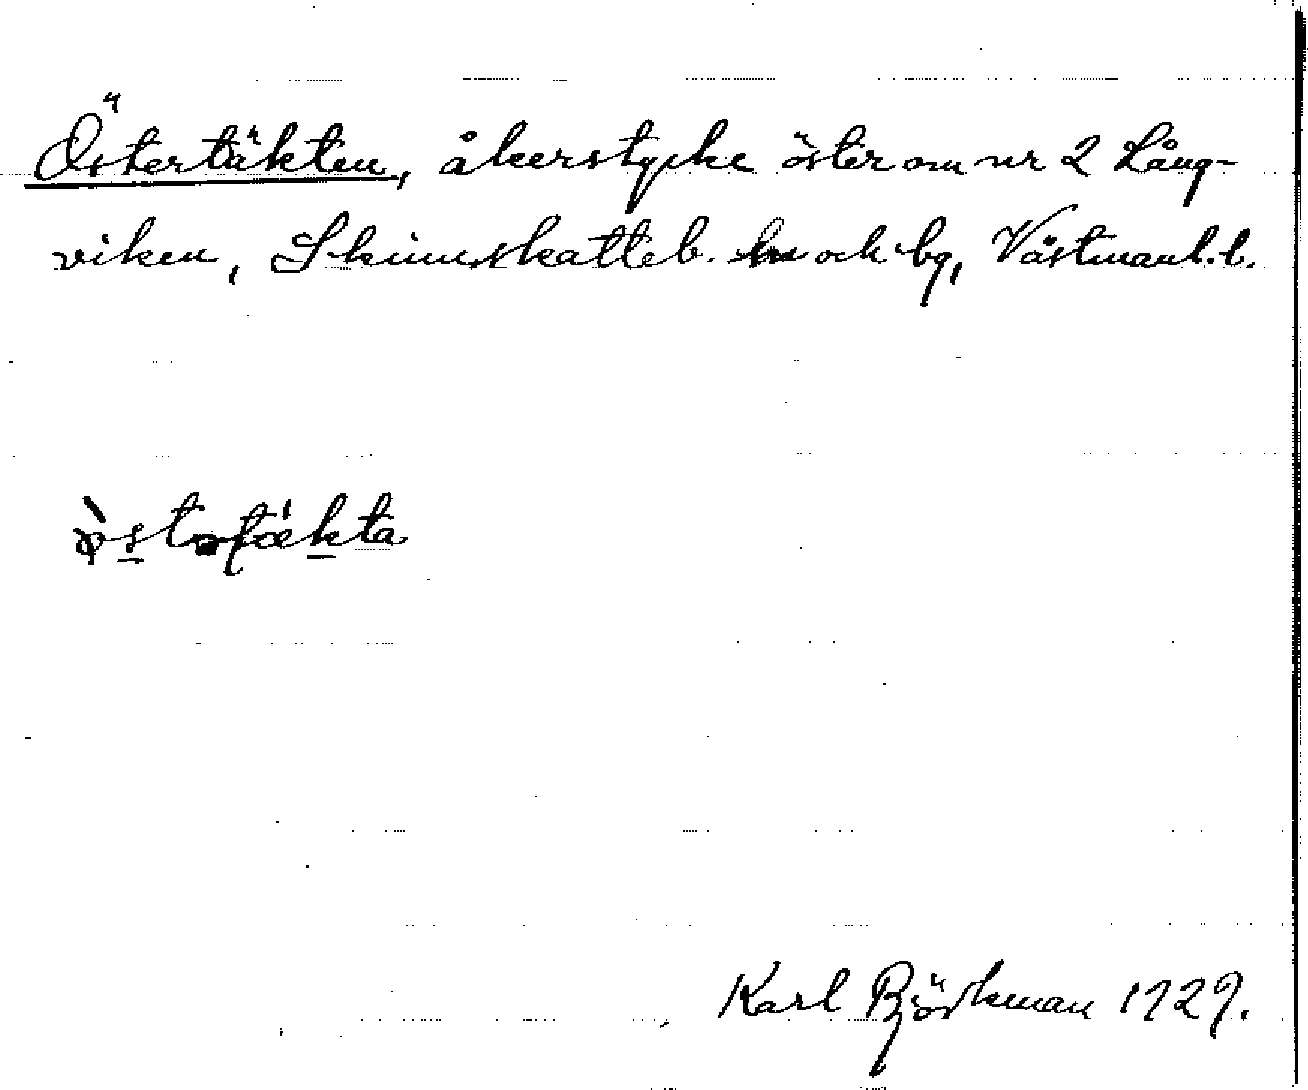 Östertäkten, åkerstycke öster om nr 2 Lång-
viken, Skinnskatteb. sn och bg, Västmanl. l.
Karl Björkman 1929.